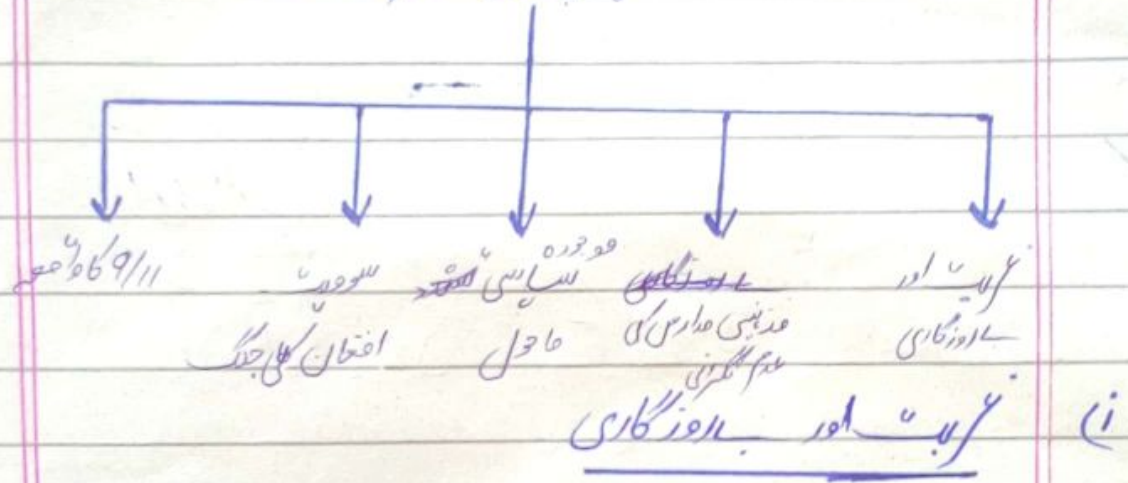 غربت اور
بے روزگاری
مذہبی مدارس کی
عدم نگرانی
موجودہ
سیاسی
ماحول
سوویت
افغان جنگ
9/11 کا واقعہ
i) غربت اور بے روزگاری